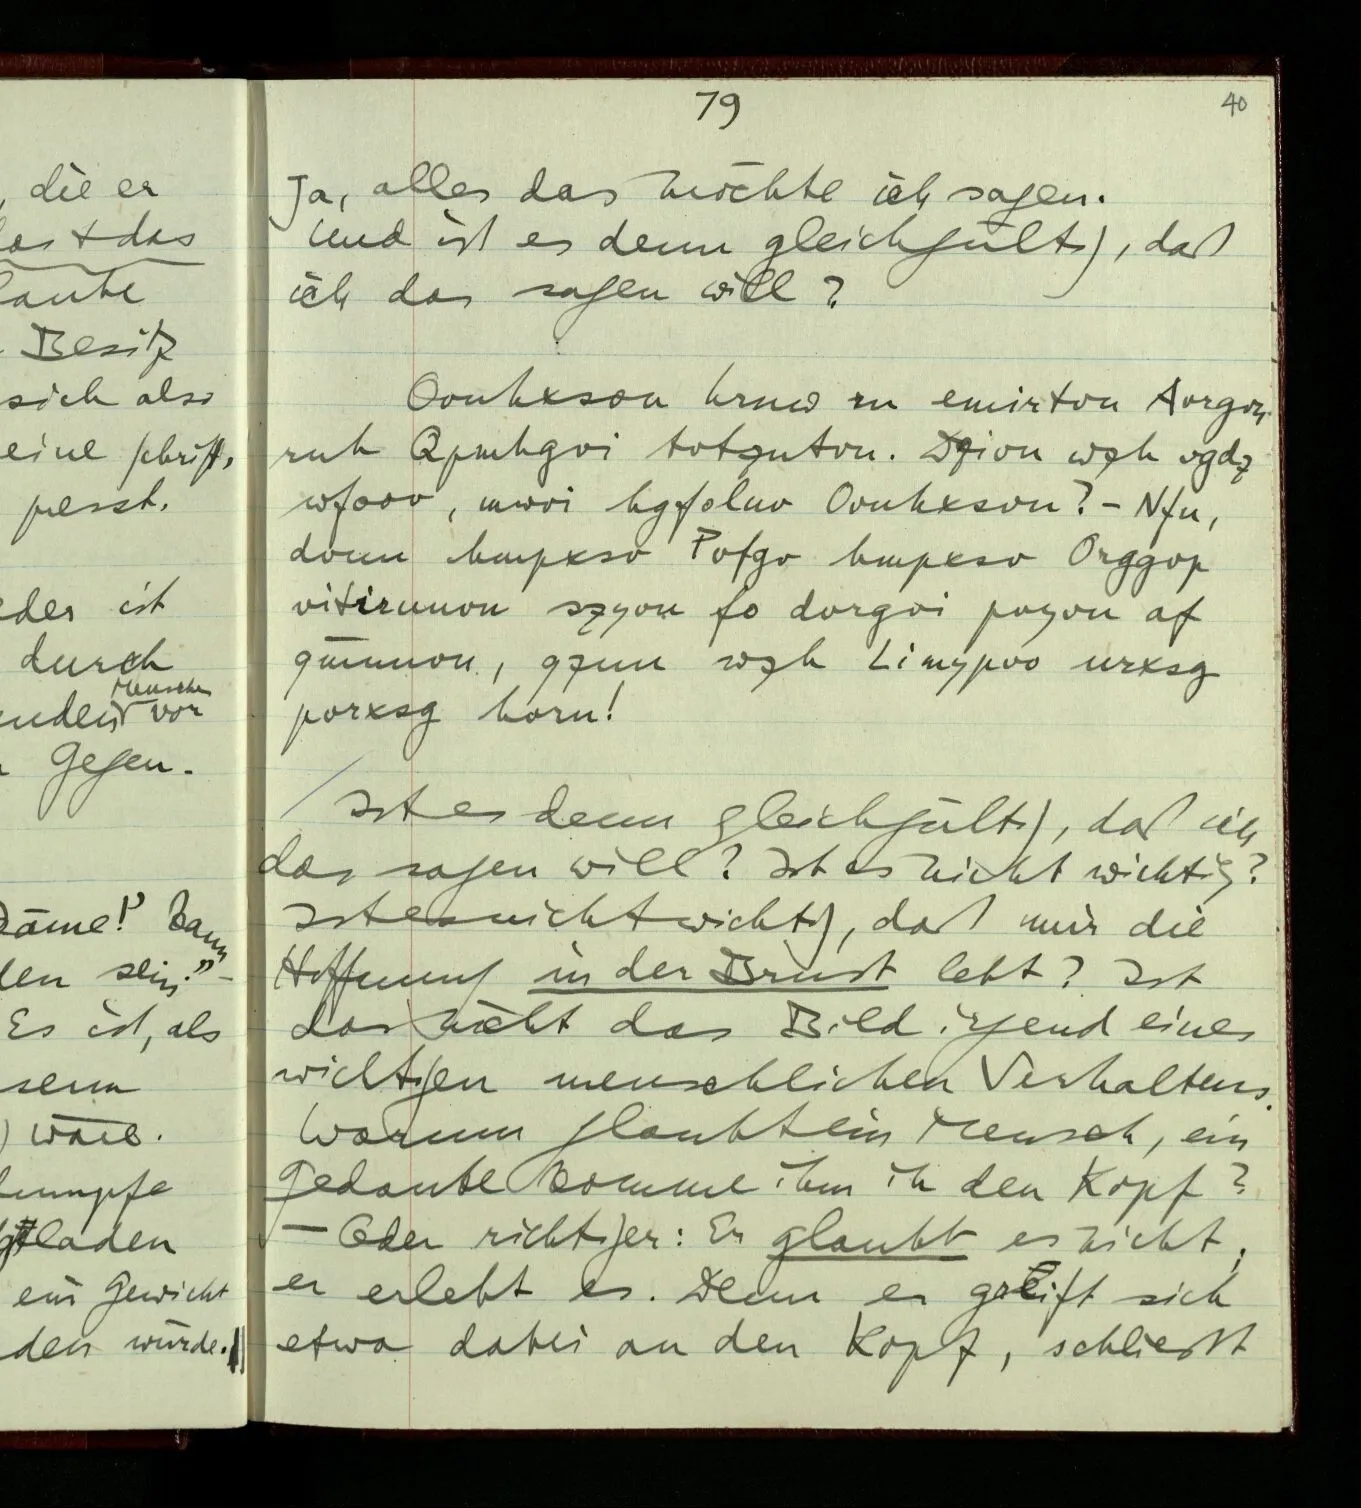 , die er
las + das
laube
Besitz
sich also
eine Schrift,
presst.
eder ist
durch
Menschen
enden vor
Gegen.
Däme!" Dann
den sein." –
Es ist, als
senn
) wäre.
dumpfe
laden
ein Gewicht
den würde. ||
79
40
Ja, alles das möchte ich sagen.
Und ist es denn gleichgültig, daß
ich das sagen will?
Oouhxson hrnw rn emirton Aorgon
rnh Qpmhgvi totznton. Dzion wzh vgdz
wfoov, mwoi hgfolnv Oouhxson? – Nfn,
donn hmpxso Pofgo hmpxso Orggop
vitirnnon szyon fo dorgvi poyon af
günnon, gznn wzh Limypoo nrxsg
porxsg horn!
/ Ist es denn gleichgültig, daß ich
das sagen will? Ist es nicht wichtig?
Ist es nicht wichtig, daß mir die
Hoffnung in der Brust lebt? Ist
das nicht das Bild irgend eines
wichtigen menschlichen Verhaltens.
Warum glaubt ein Mensch, ein
Gedanke komme ihm in den Kopf?
– Oder richtiger: Er glaubt es nicht;
er erlebt es. Denn er greift sich
etwa dabei an den Kopf, schließt